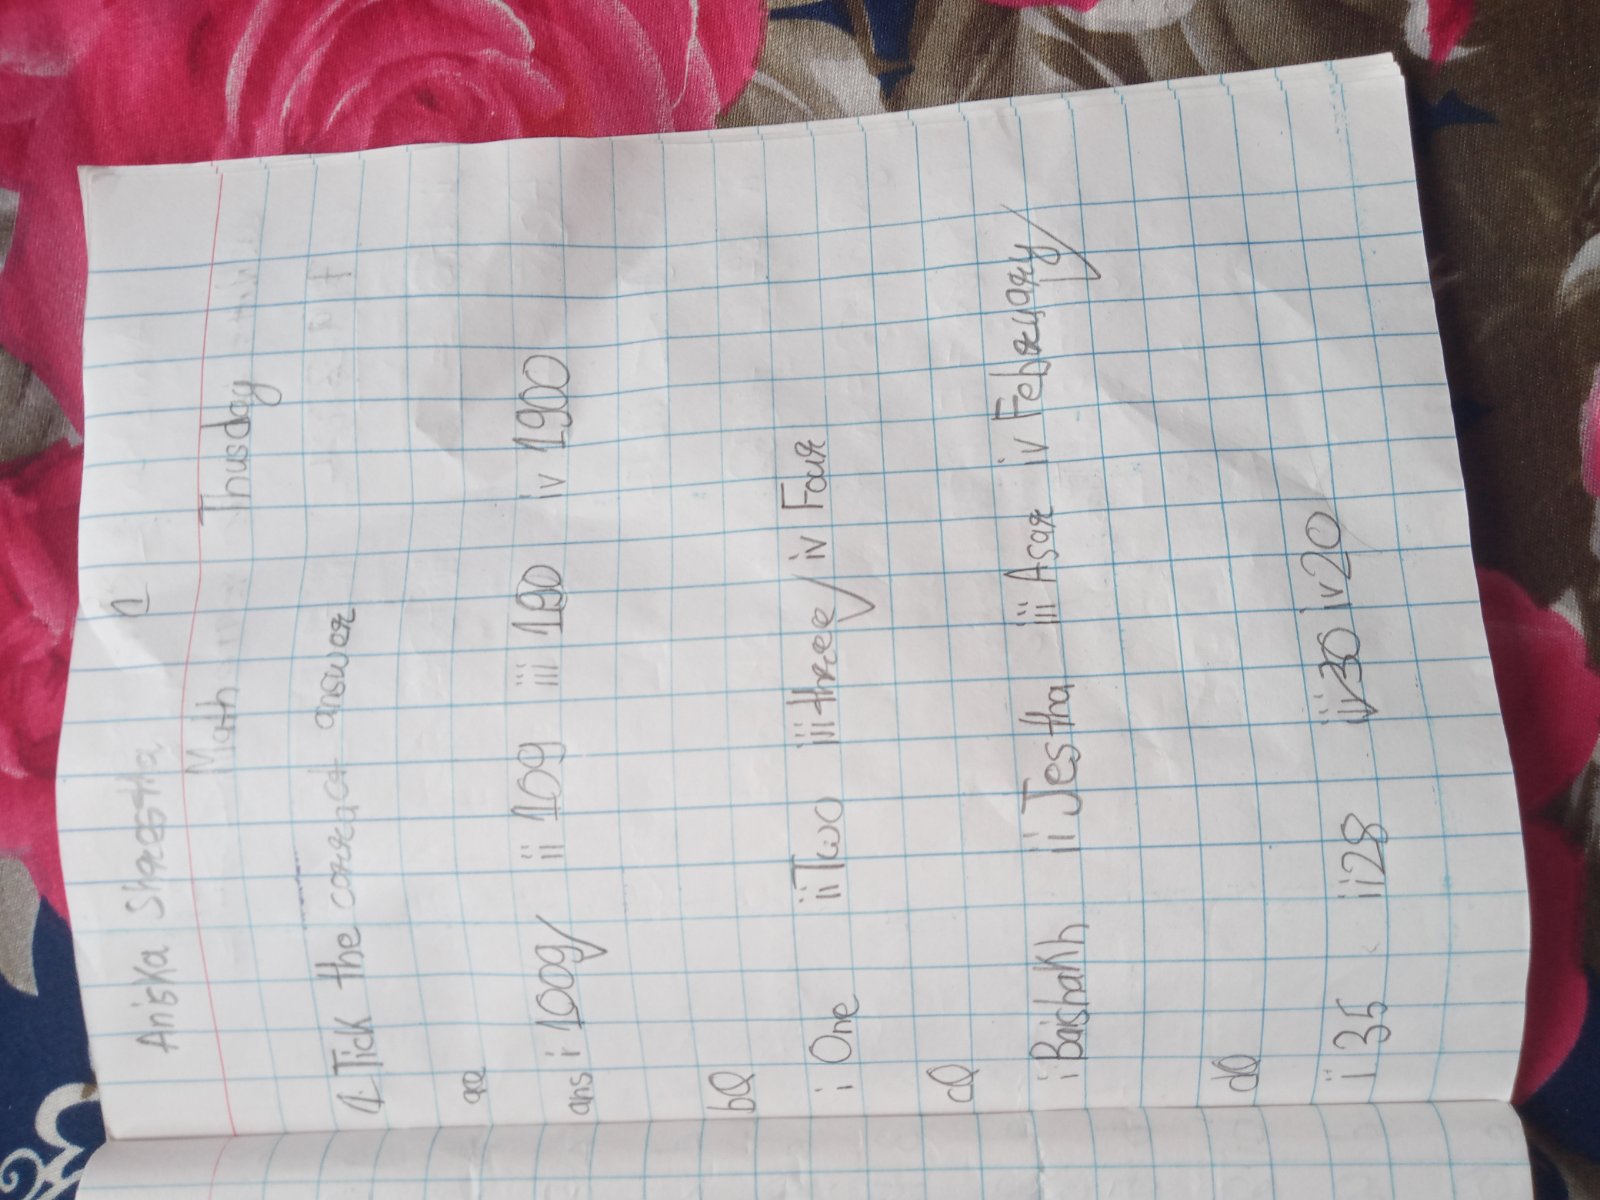 Aniska Shrestha 1
Math Thusday
1. Tick the correct answer
aQ
ans i 1009 ii 109 iii 190 iv 1900
bQ
i One ii Two iii three iv Four
cQ
i Baishakh ii Jestha iii Asar iv February
dQ
i 35 ii 28 iii 30 iv 20